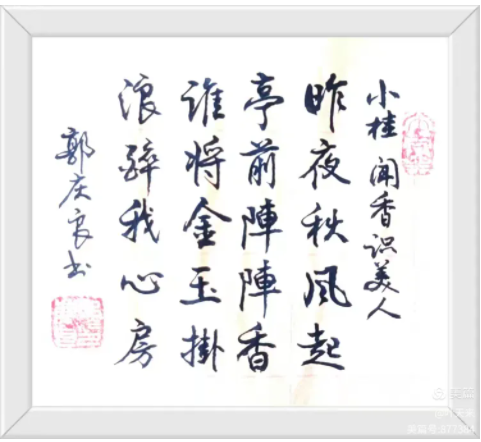 小桂 闻香识美人
昨夜秋风起
亭前陣陣香
谁将金玉掛
浪醉我心房
郭庆良书